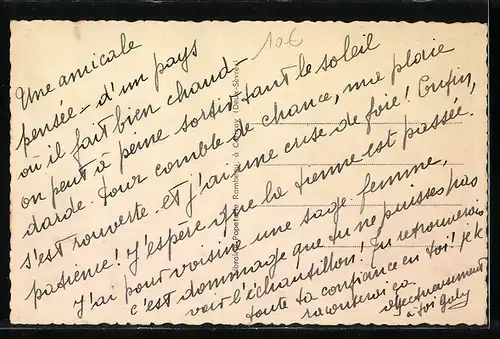 10€
Une amicale
pensée - d'un pays
où il fait bien chaud -
on peut à peine sortir tant le soleil
darde. Pour comble de chance, ma plaie
s'est rouverte. et j'ai une crise de foie! Enfin,
patience! J'espère que la tienne est passée.
J'ai pour voisine une sage femme,
c'est dommage que tu ne puisses pas
voir l'échantillon! Tu retrouverais
toute ta confiance en toi! je te
raconterai ça.
affectueusement
à toi Gaby
Librairie Papeterie Rambeau, à Cerizay (Deux-Sèvres)